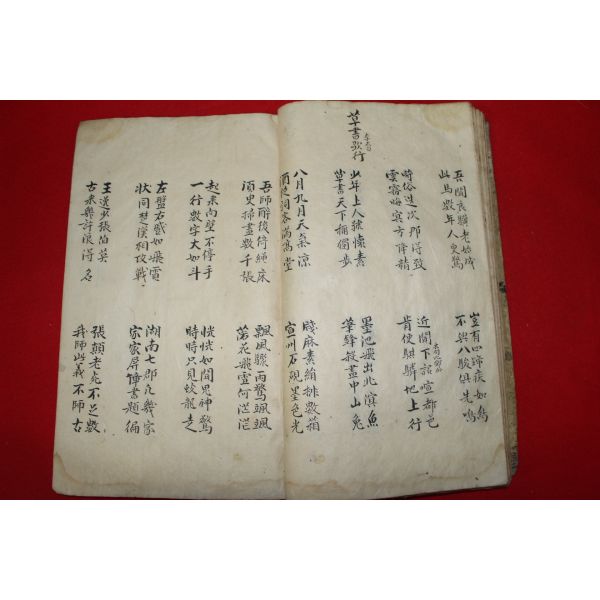 吾聞良驥老始成
此馬數年人更驚
豈有四蹄疾如鳥
不與八駿俱先鳴
時俗造次那得致
雲霧晦冥方降精
近聞下詔喧都邑
肯使騏驎地上行
草書歌行 李太白
少年上人號懷素
草書天下稱獨步
墨池飛出北溟魚
筆鋒殺盡中山兔
八月九月天氣凉
酒徒詞客滿高堂
牋麻素絹排數箱
宣州石硯墨色光
吾師醉後倚繩床
須臾掃盡數千張
飄風驟雨驚颯颯
萬花飛雪何茫茫
起來向壁不停手
一行數字大如斗
恍恍如聞鬼神驚
時時只見蛟龍走
左盤右蹙如飛電
狀同楚漢相攻戰
湖南七郡凡幾家
家家屛障書題徧
王逸少張伯英
古來幾許浪得名
張顚老死不足數
我師此義不師古